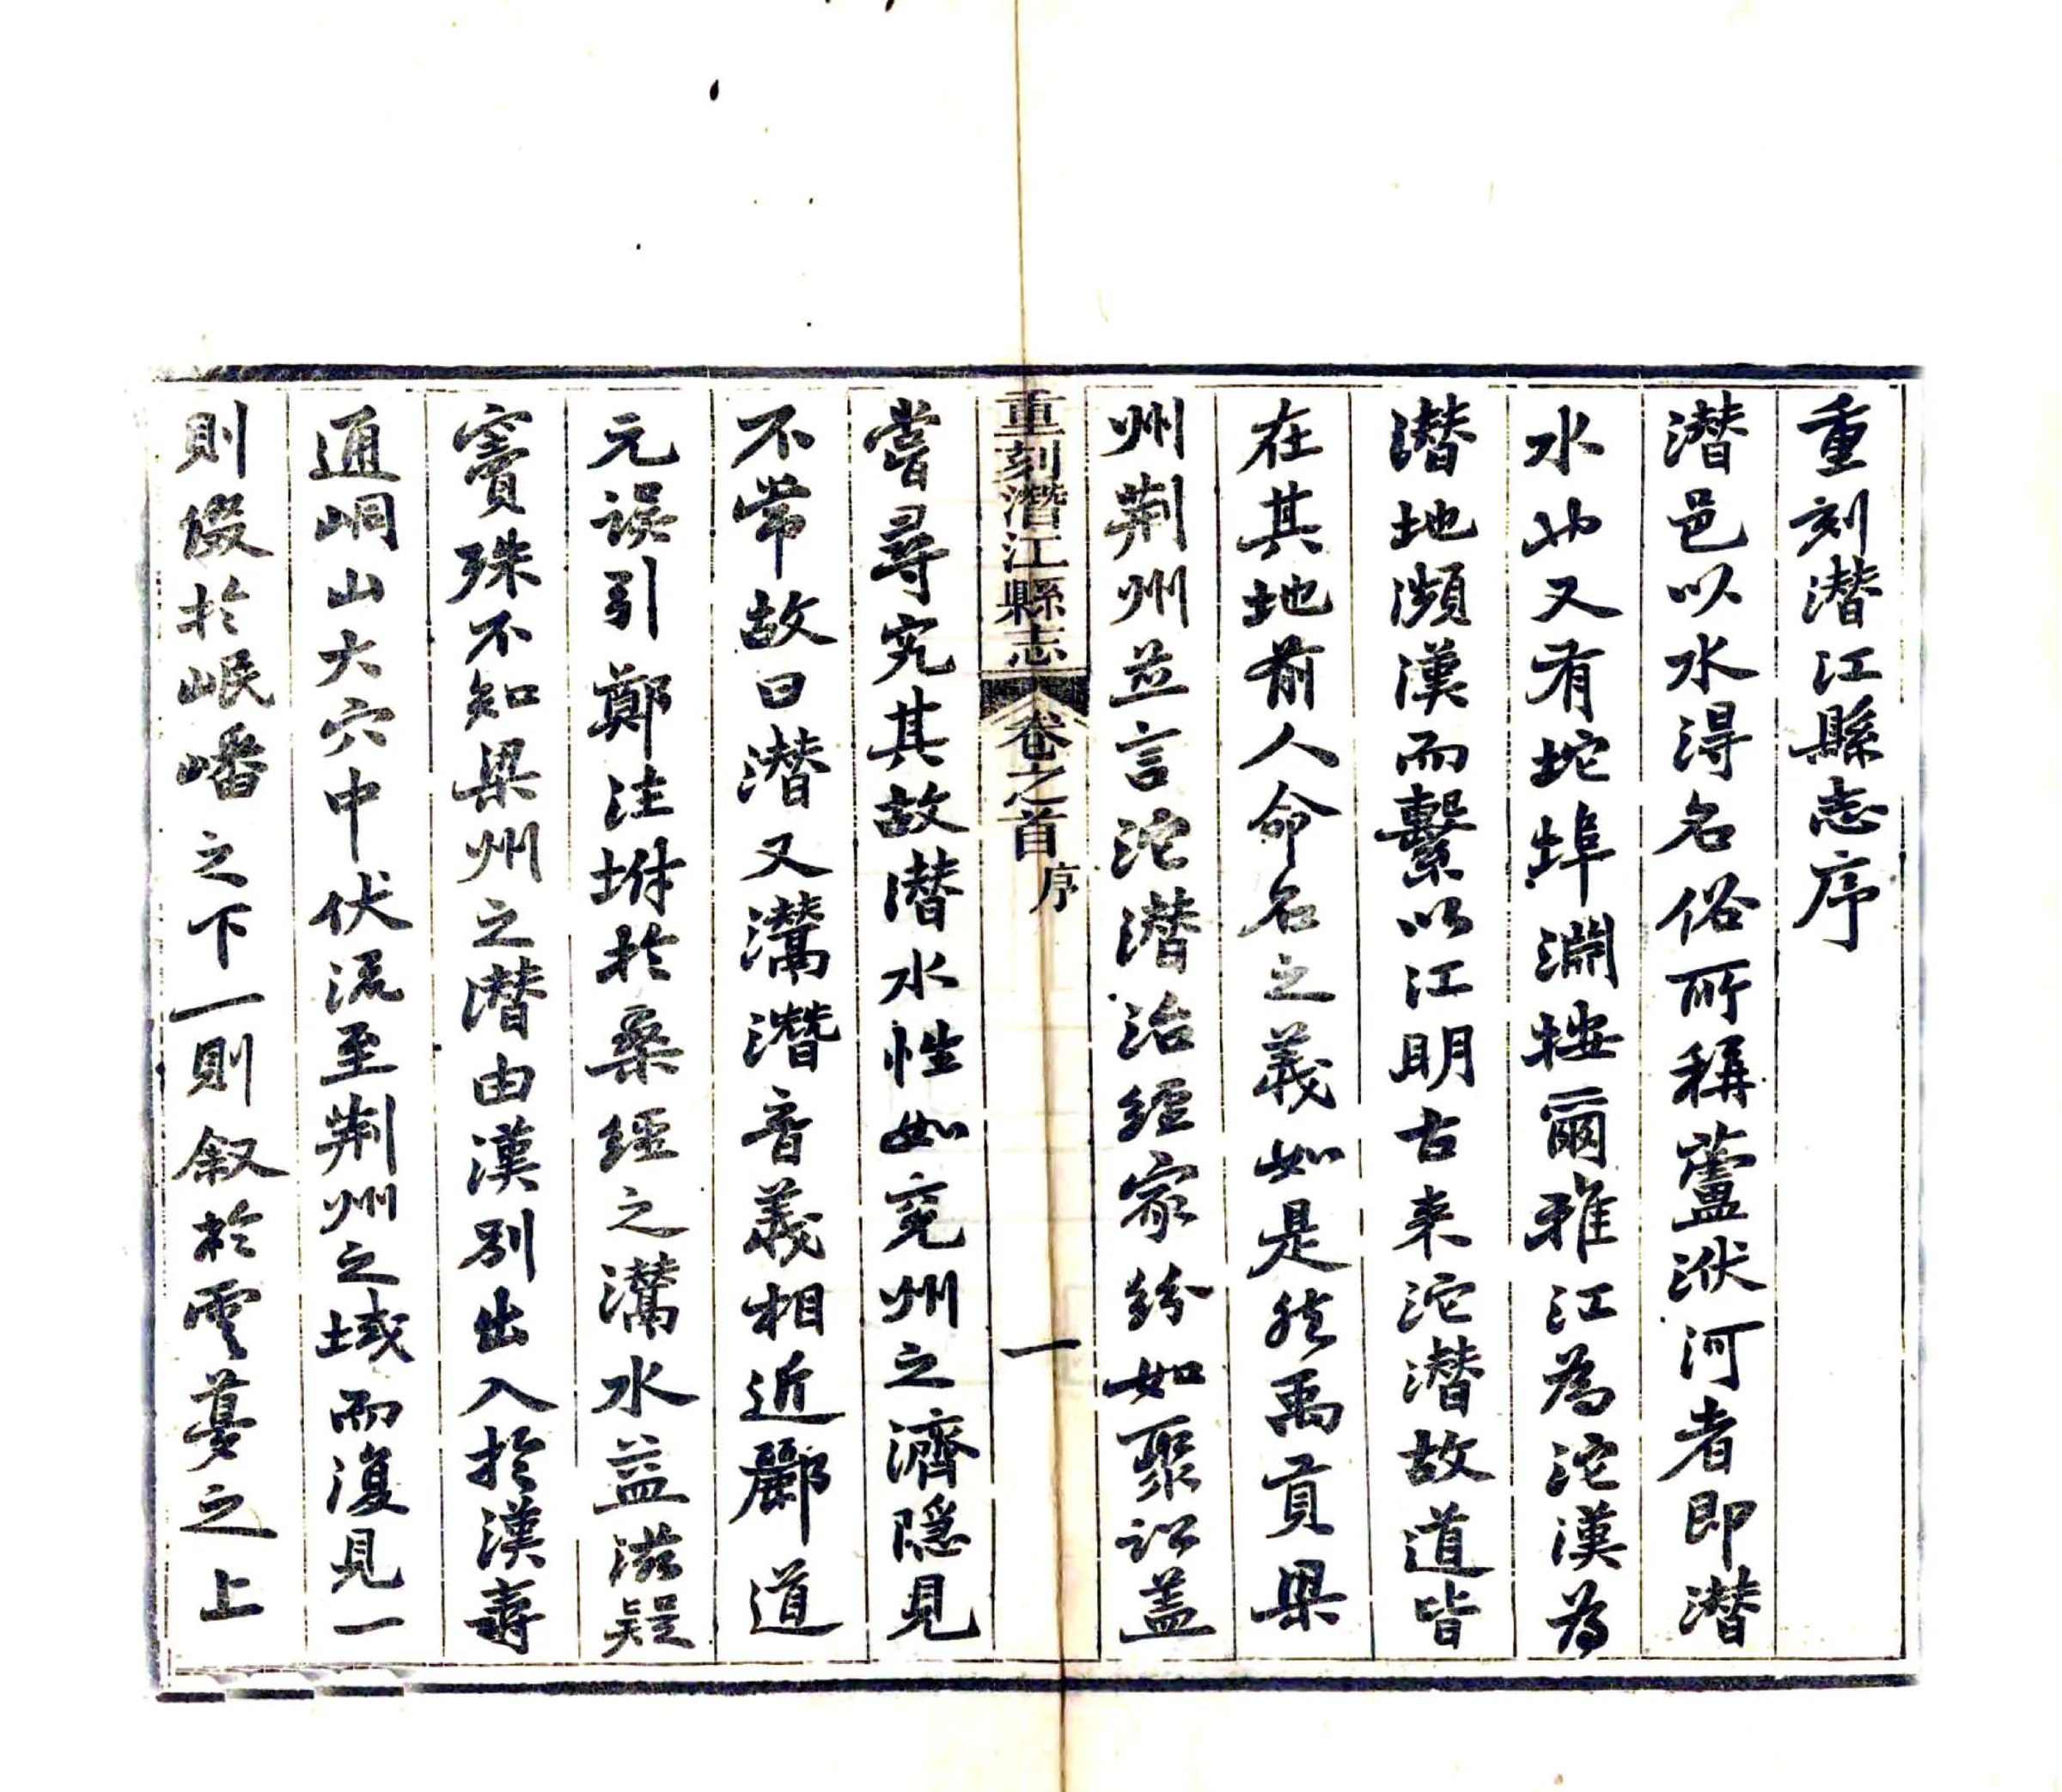 重刻潛江縣志序
潛邑以水得名俗所稱蘆洑河者即潛
水也又有坨埠淵按爾雅江為沱漢為
潛地瀕漢而繫以江明古来沱潛故道皆
在其地前人命名之義如是然禹貢梁
州荆州並言沱潛治經家紛如聚訟蓋
重刻潛江縣志
卷之首
序
一
嘗尋究其故潛水性如兗州之濟隱見
不常故曰潛又灊潛音義相近酈道
元誤引鄭注坿於桑經之灊水益滋疑
竇殊不知梁州之潛由漢別出入於漢壽
通峒山大穴中伏流至荆州之域而復見一
則叙於岷嶓之下一則叙於雲夢之上